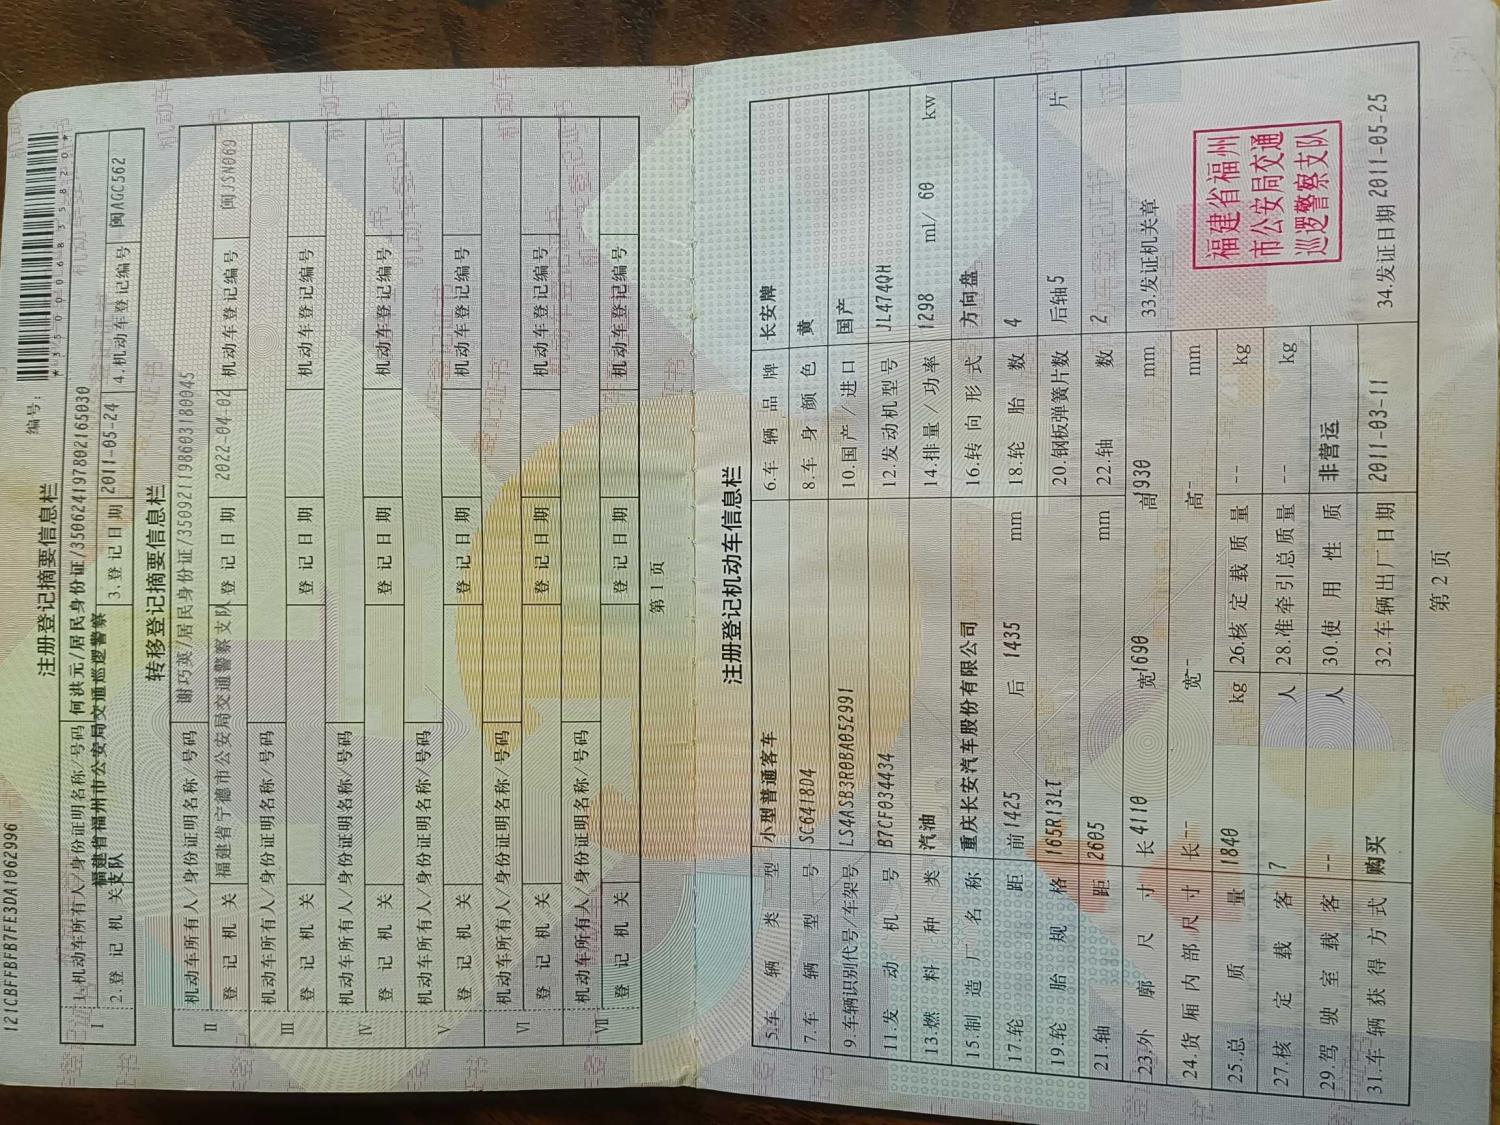 121CBFFBFB7FE3DA1062996
编号:
*350006835820*
注册登记摘要信息栏
I 1.机动车所有人/身份证明名称/号码 何洪元/居民身份证/350624197802165030
2.登记机关 福建省福州市公安局交通巡逻警察支队 3.登记日期 2011-05-24 4.机动车登记编号 闽AGC562
转移登记摘要信息栏
II 机动车所有人/身份证明名称/号码 谢巧英/居民身份证/350921198603180045
登记机关 福建省宁德市公安局交通警察支队 登记日期 2022-04-02 机动车登记编号 闽JSN069
III 机动车所有人/身份证明名称/号码
登记机关 登记日期 机动车登记编号
IV 机动车所有人/身份证明名称/号码
登记机关 登记日期 机动车登记编号
V 机动车所有人/身份证明名称/号码
登记机关 登记日期 机动车登记编号
VI 机动车所有人/身份证明名称/号码
登记机关 登记日期 机动车登记编号
VII 机动车所有人/身份证明名称/号码
登记机关 登记日期 机动车登记编号
第1页
注册登记机动车信息栏
5.车辆类型 小型普通客车 6.车辆品牌 长安牌
7.车辆型号 SC6418D4 8.车身颜色 黄
9.车辆识别代号/车架号 LS4ASB3R0BA052991 10.国产/进口 国产
11.发动机号 B7CF034434 12.发动机型号 JL474QH
13.燃料种类 汽油 14.排量/功率 1298 ml/ 60 kw
15.制造厂名称 重庆长安汽车股份有限公司 16.转向形式 方向盘
17.轮距 前1425 后 1435 mm 18.轮胎数 4
19.轮胎规格 165R13LT 20.钢板弹簧片数 后轴5 片
21.轴距 2605 mm 22.轴数 2
23.外廓尺寸 长4110 宽1690 高1930 mm 33.发证机关章
24.货厢内部尺寸 长-- 宽-- 高- mm
25.总质量 1840 kg 26.核定载质量 -- kg
27.核定载客 7 人 28.准牵引总质量 -- kg
29.驾驶室载客 -- 人 30.使用性质 非营运
31.车辆获得方式 购买 32.车辆出厂日期 2011-03-11 34.发证日期 2011-05-25
福建省福州
市公安局交通
巡逻警察支队
第2页